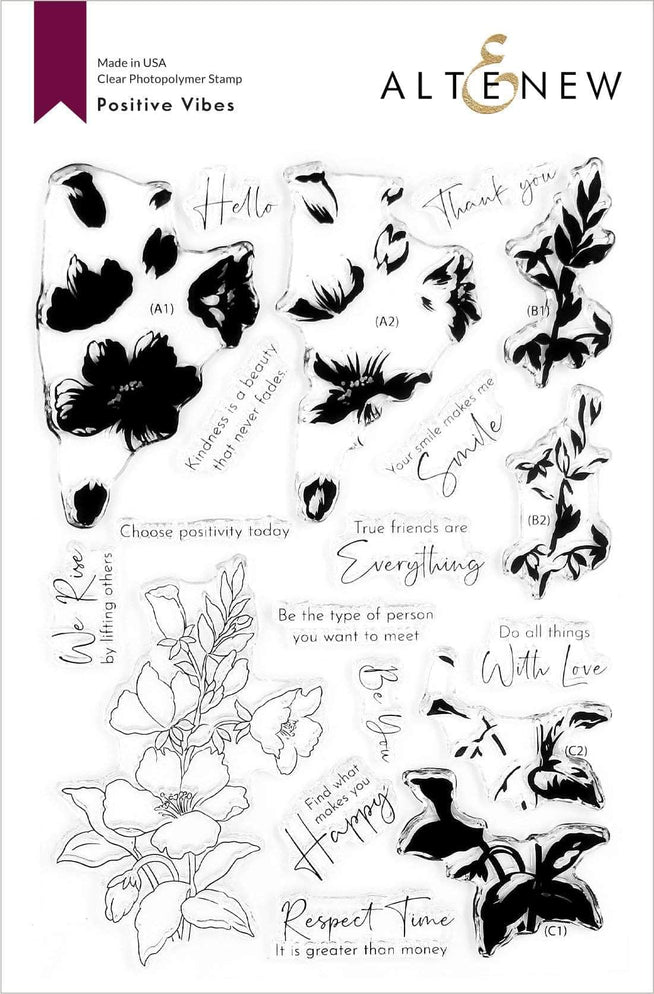 Made in USA
Clear Photopolymer Stamp
Positive Vibes
ALTENEW
Hello
Thank you
(A1)
(A2)
(B1)
Kindness is a beauty
that never fades.
Your smile makes me
Smile
(B2)
Choose positivity today
True friends are
Everything
We Rise
by lifting others
Be the type of person
you want to meet
Do all things
With Love
Be You
(C2)
Find what
makes you
Happy
(C1)
Respect Time
It is greater than money